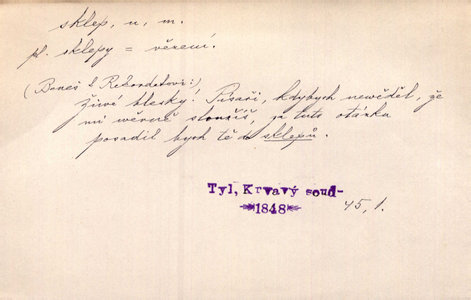 sklep, u, m.
pl. sklepy = vězení.
(Beneš k Rekordatovi:)
živé blesky! Písaři, kdybych newěděl, že
mi wěrně sloužíš, za tuto otázku
posadil bych tě do sklepů.
Tyl, Krvavý soud-
1848
45, 1.